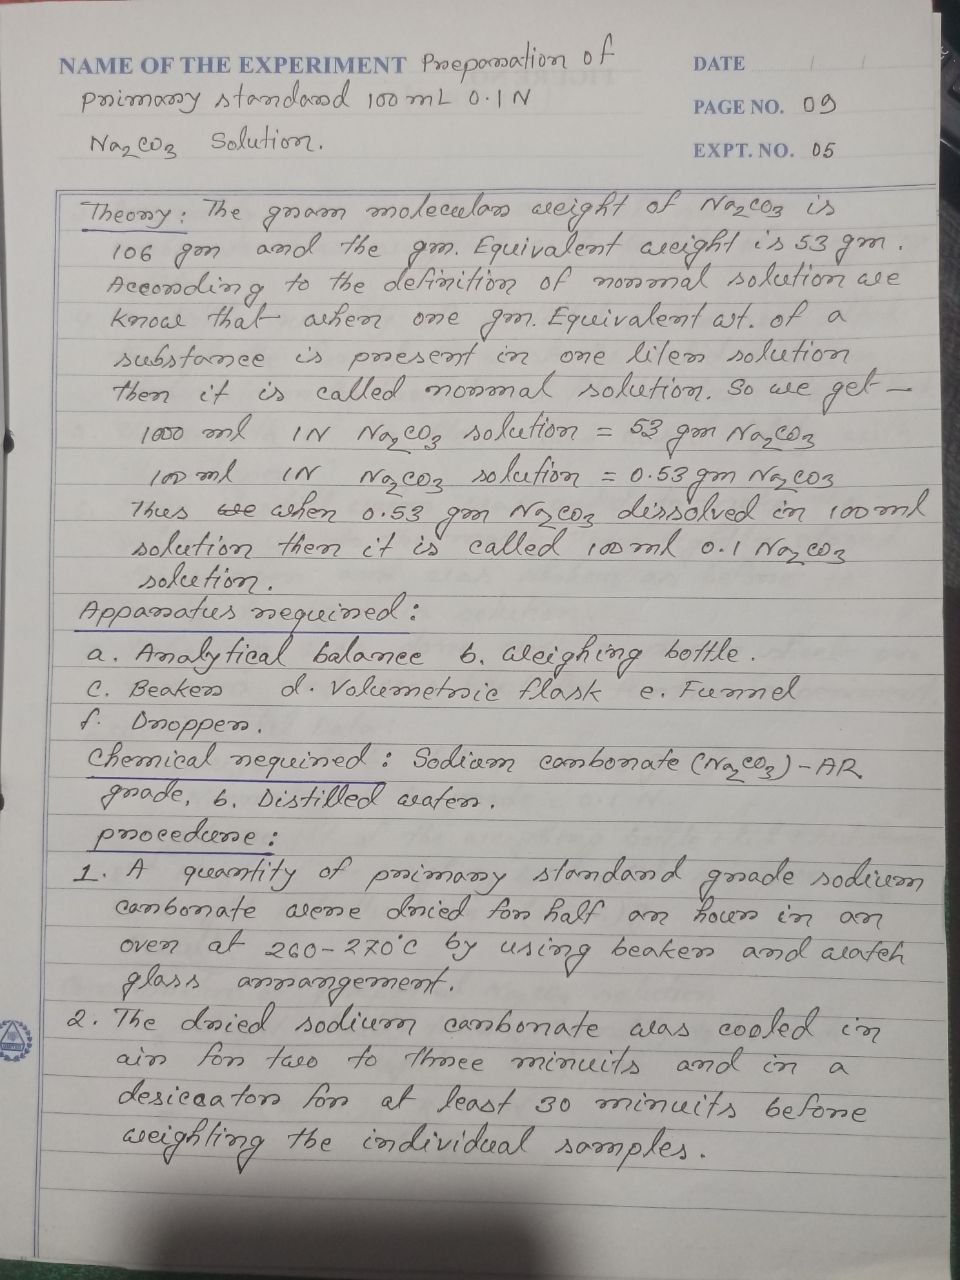 NAME OF THE EXPERIMENT Preparation of
DATE
primary standard 100 mL 0.1 N
PAGE NO. 09
Na2CO3 Solution.
EXPT. NO. 05
Theory: The gram molecular weight of Na2CO3 is
106 gm and the gm. Equivalent weight is 53 gm.
According to the definition of normal solution we
know that when one gm. Equivalent wt. of a
substance is present in one liter solution
then it is called normal solution. So we get —
1000 ml 1N Na2CO3 solution = 53 gm Na2CO3
100 ml 1N Na2CO3 solution = 0.53 gm Na2CO3
Thus when 0.53 gm Na2CO3 dissolved in 100 ml
solution then it is called 100 ml 0.1 Na2CO3
solution.
Apparatus required:
a. Analytical balance b. Weighing bottle.
c. Beaker d. Volumetric flask e. Funnel
f. Dropper.
Chemical required: Sodium carbonate (Na2CO3) - AR
grade, b. Distilled water.
procedure:
1. A quantity of primary standard grade sodium
carbonate were dried for half an hour in an
oven at 260-270°C by using beaker and watch
glass arrangement.
2. The dried sodium carbonate was cooled in
air for two to three minuits and in a
desicaator for at least 30 minuits before
weighting the individual samples.